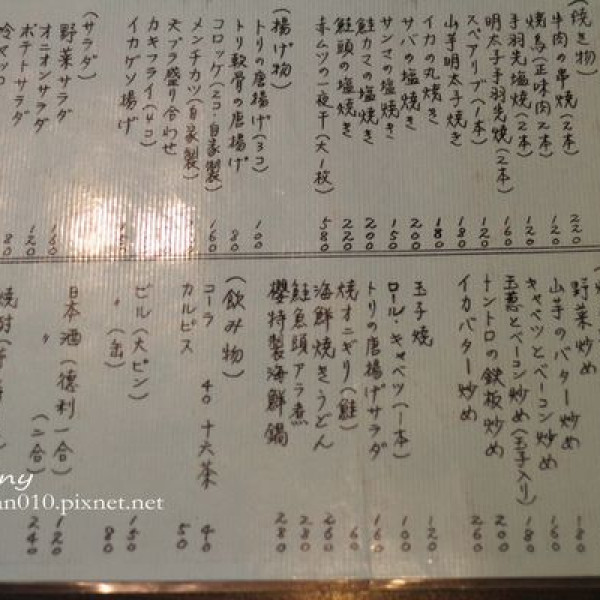 (焼き物)
牛肉の串焼(2本) 220
焼鳥(正味肉2本) 120
手羽先塩焼(2本) 120
明太子手羽先焼(2本) 160
スペアリブ(1本) 120
山芋明太子焼き 180
イカの丸焼き 180
サバの塩焼き 200
サンマの塩焼き 150
鮭カマの塩焼き 200
鮭頭の塩焼き 220
赤ムツの一夜干(大1枚) 580
(揚げ物)
トリの唐揚げ(3コ) 100
トリ軟骨の唐揚げ 80
コロッケ(2コ・自家製) 160
メンチカツ(自家製)
天プラ盛り合わせ
カキフライ(4コ)
イカゲソ揚げ
(サラダ)
野菜サラダ 160
オニオンサラダ
ポテトサラダ 120
80
野菜炒め 180
山芋のバター炒め 160
キャベツとベーコン炒め 180
玉葱とベーコン炒め(玉子入り)
トントロの鉄板炒め 200
イカバター炒め 260
玉子焼 120
ロール・キャベツ(1本) 100
トリの唐揚げサラダ 160
焼オニギリ(鮭) 60
海鮮焼きうどん 260
鮭魚頭アラ煮 280
櫻特製海鮮鍋 280
(飲み物)
コーラ 40 十六茶 40
カルピス 50
ビル(大ビン) 150
〃(缶) 80
日本酒(德利一合) 120
〃(二合) 240
ny
an010.pixnet.net